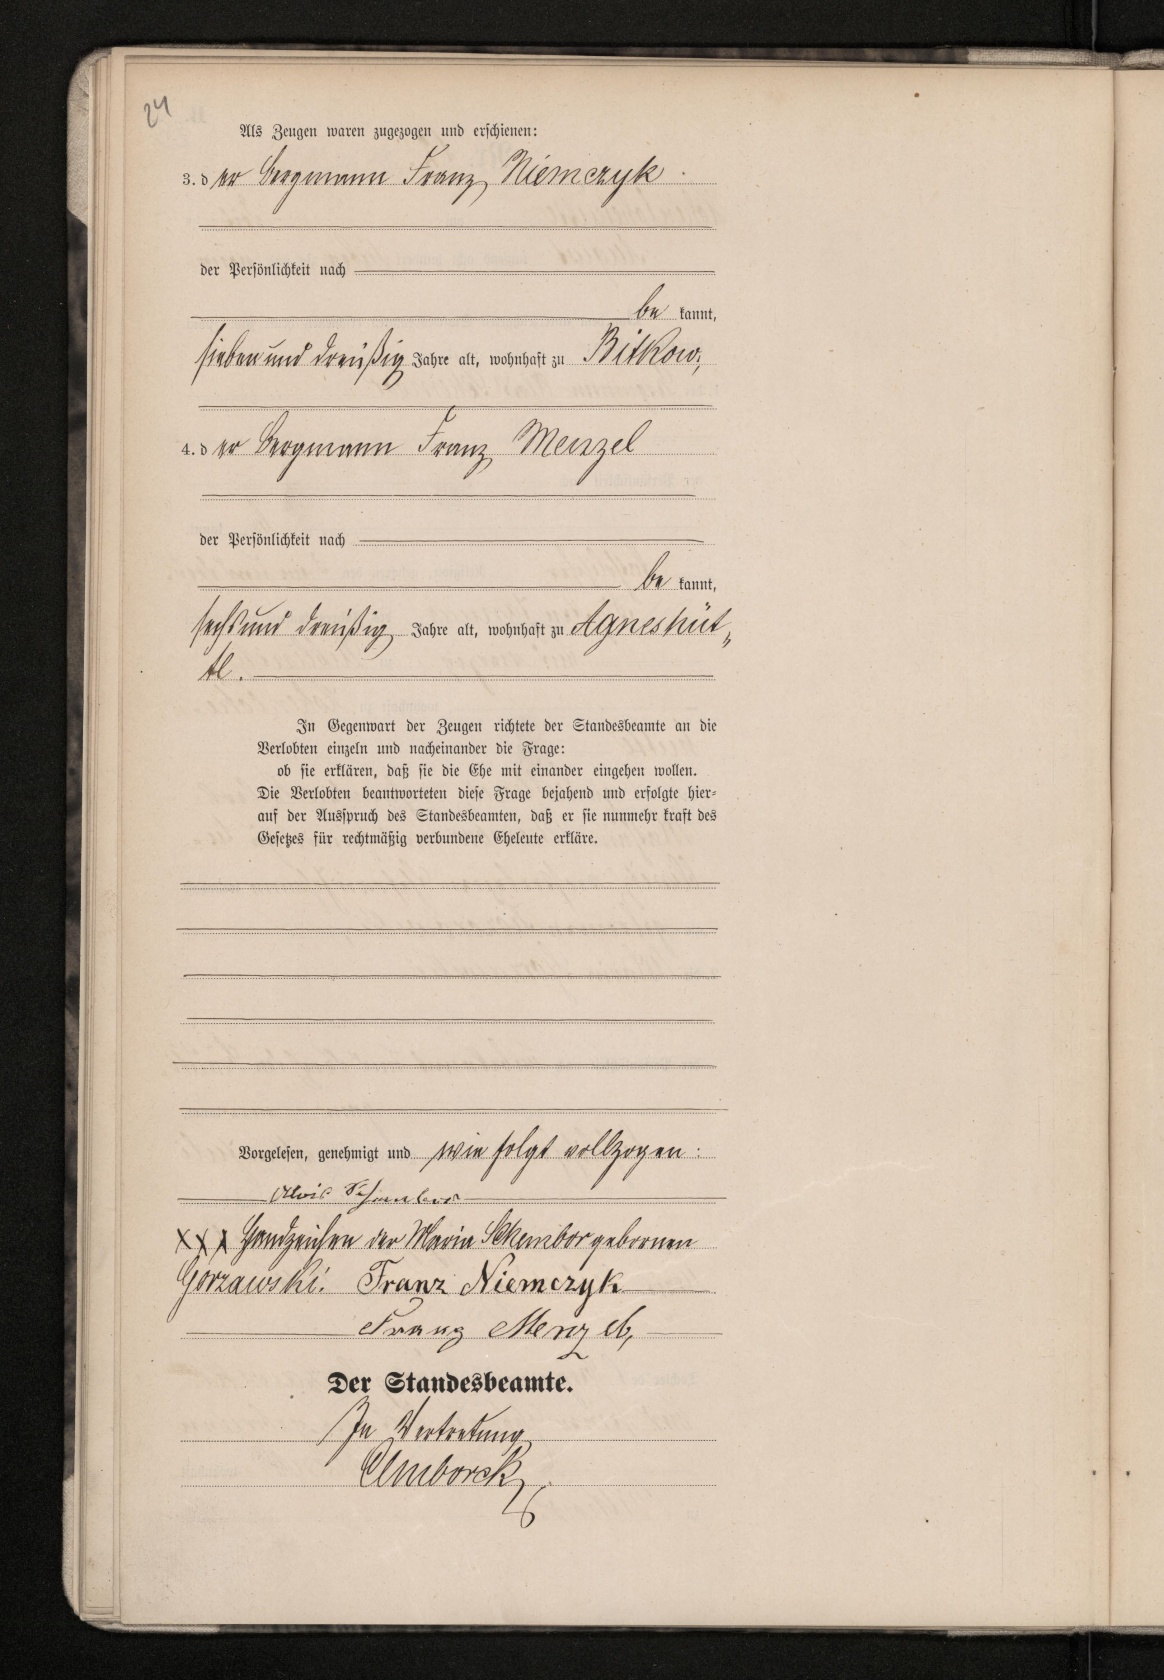 24
Als Zeugen waren zugezogen und erschienen:
3. der Bergmann Franz Niemczyk
der Persönlichkeit nach
be kannt,
sieben und dreißig Jahre alt, wohnhaft zu Bitkow,
4. der Bergmann Franz Menzel
der Persönlichkeit nach
be kannt,
sechs und dreißig Jahre alt, wohnhaft zu Agneshüt„
te.
In Gegenwart der Zeugen richtete der Standesbeamte an die
Verlobten einzeln und nacheinander die Frage:
ob sie erklären, daß sie die Ehe mit einander eingehen wollen.
Die Verlobten beantworteten diese Frage bejahend und erfolgte hier=
auf der Ausspruch des Standesbeamten, daß er sie nunmehr kraft des
Gesetzes für rechtmäßig verbundene Eheleute erkläre.
Vorgelesen, genehmigt und wie folgt vollzogen:
Alois
XXX Handzeichen der Maria Schembor gebornen
Gorzawski. Franz Niemczyk
Franz Menzel,
Der Standesbeamte.
In Vertretung